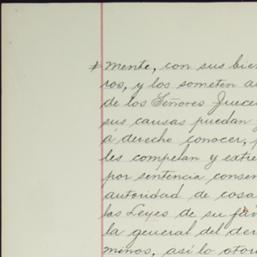 mente, con sus bien
ros, y los someten a
de los Señores Juece
sus causas puedan y
á derecho conocer, p
les competan y extre
por sentencia consen
autoridad de cosa
las Leyes de su fav
la general del der
minos, así lo otor